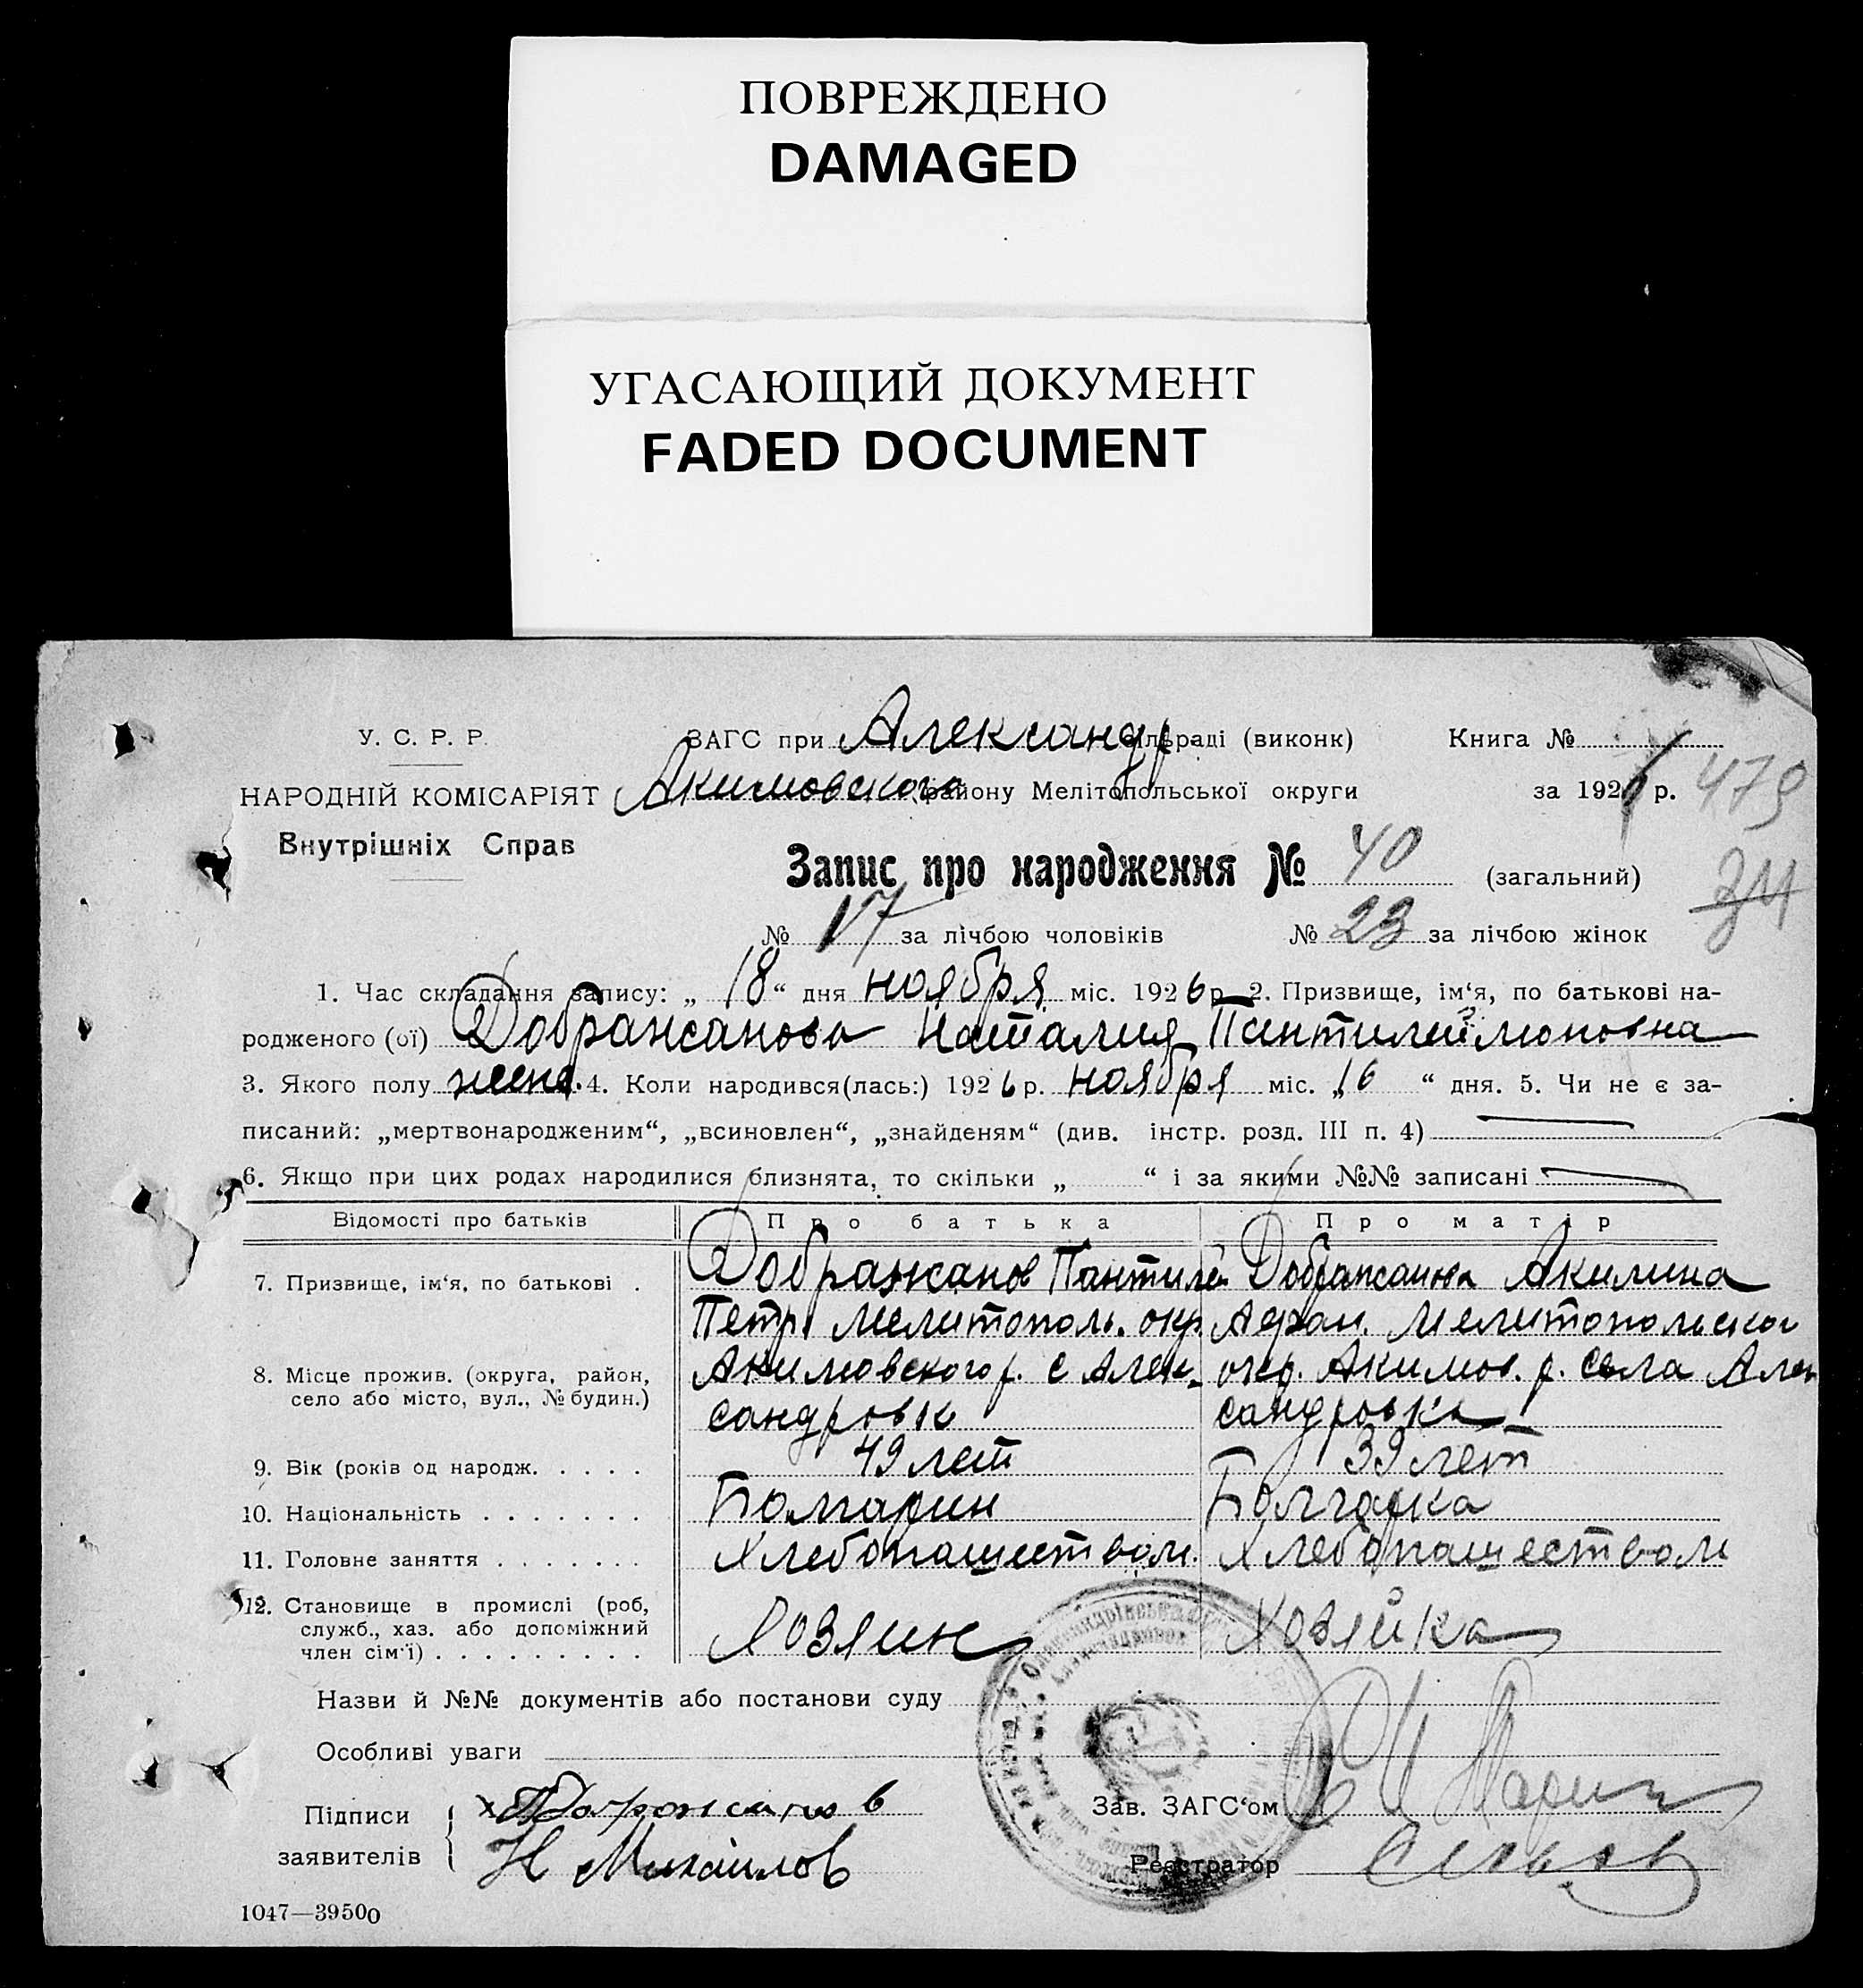 ПОВРЕЖДЕНО
DAMAGED
УГАСАЮЩИЙ ДОКУМЕНТ
FADED DOCUMENT
У. С. Р. Р. ЗАГС при Александр. сільраді (виконк) Книга №
НАРОДНІЙ КОМІСАРІЯТ Акимовского району Мелітопольської округи за 1926 р. 479
Внутрішніх Справ
Запис про народження № 40 (загальний) 34
№ 17 за лічбою чоловіків № 23 за лічбою жінок
1. Час складання запису: „ 18 “ дня ноября міс. 1926 р. 2. Призвище, ім‘я, по батькові на-
родженого (ої) Дображанова Наталия Пантилеймоновна
3. Якого полу женс. 4. Коли народився(лась:) 1926 р. ноября міс. „16 “ дня. 5. Чи не є за-
писаний: „мертвонародженим“, „всиновлен“, „знайденям“ (див. інстр. розд. III п. 4)
6. Якщо при цих родах народилися близнята, то скільки „ “ і за якими №№ записані
Відомості про батьків Про батька Про матір
7. Призвище, ім‘я, по батькові . Дображанов Пантилей Дображанова Акилина
Петр. Мелитополь. окр. Афан. Мелитопольской
8. Місце прожив. (округа, район, Акимовского р. с Алек- окр. Акимов. р. села Алек
село або місто, вул., № будин.) сандровк сандровка
9. Вік (років од народж. . . . . 49 лет 39 лет
10. Національність . . . . . . . Болгарин Болгарка
11. Головне заняття . . . . . . . Хлебопашеством. Хлебопашеством
12. Становище в промислі (роб,
служб., хаз. або допоміжний Хозяин Хозяйка
член сім‘ї) . . . . . . . . .
Назви й №№ документів або постанови суду
Особливі уваги
Підписи
заявителів Н Михайлов
Зав. ЗАГС‘ом
Реєстратор
1047—39500